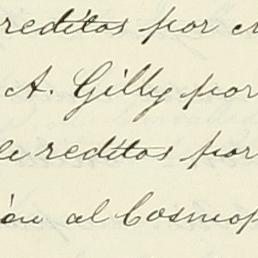 reditos por
A. Gilly por
de reditos por
ón al Cosmop